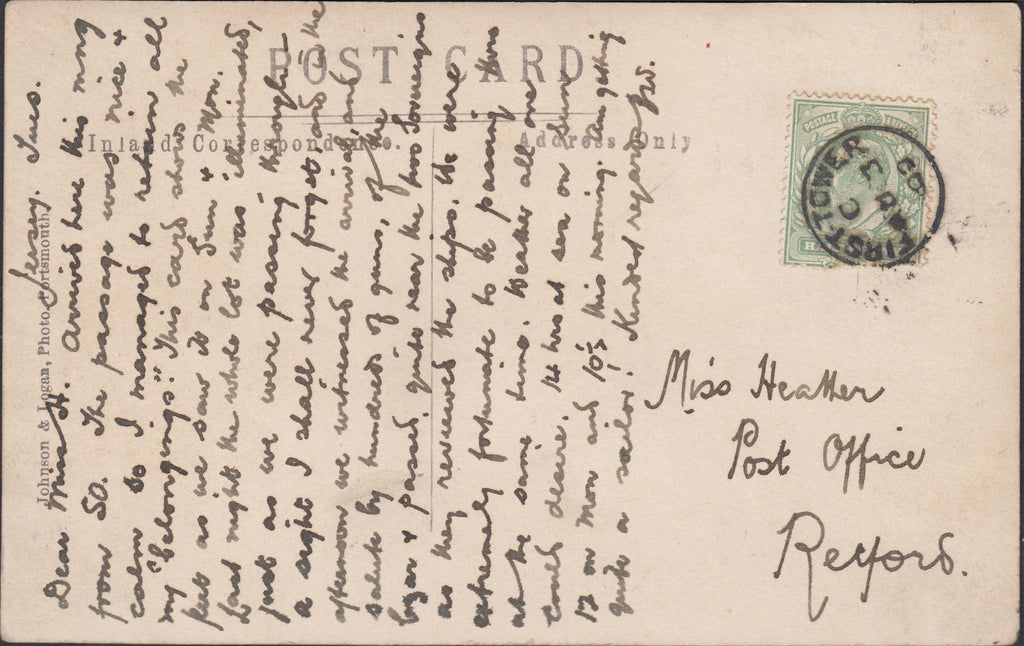 POST CARD
Inland Correspondence.
Address Only
Johnson & Logan, Photo. Portsmouth.
Jersey. Tues.
Dear Miss H. Arrived here this mng
from SO. The passage was nice &
calm so I managed to retain all
my "belongings". This card shows the
fleet as we saw it on Sun & Mon.
Last night the whole lot was illuminated,
just as we were passing through -
a sight I shall never forget and in the
afternoon we witnessed the arrival and
salute by hundreds of guns, of the
& passed quite near the two Sovereigns
as they reviewed the ships. We were
extremely fortunate to be passing thro
at the same time. Weather all one
could desire. 14 hrs at sea on Sun
12 on Mon and 10½ this morning. Am getting
quite a sailor! Kindest regards
Miss Heather
Post Office
Retford.
POSTAGE
FIRST-TOWER
C
AU 3
09